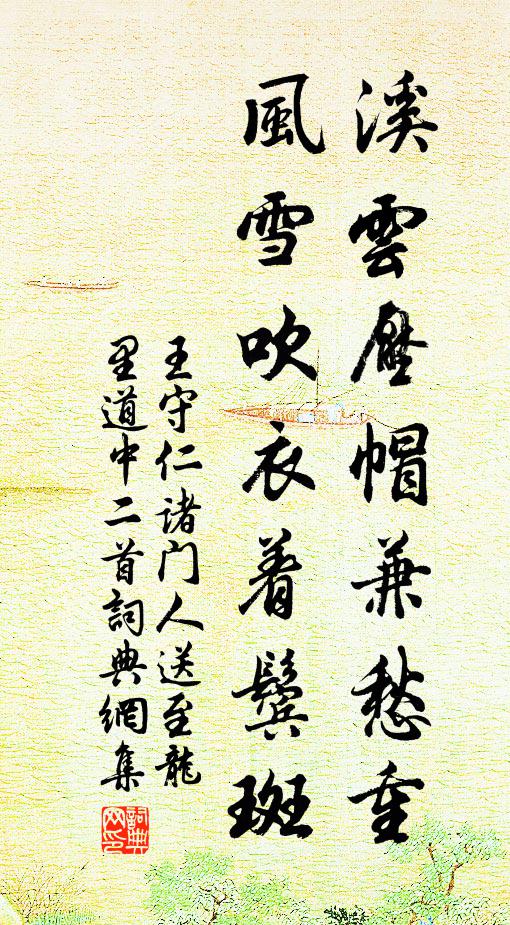 溪雲壓帽兼愁重
風雪吹衣着鬢斑
王守仁诸门人送至龍
里道中二首詞典網集
詞典
网印